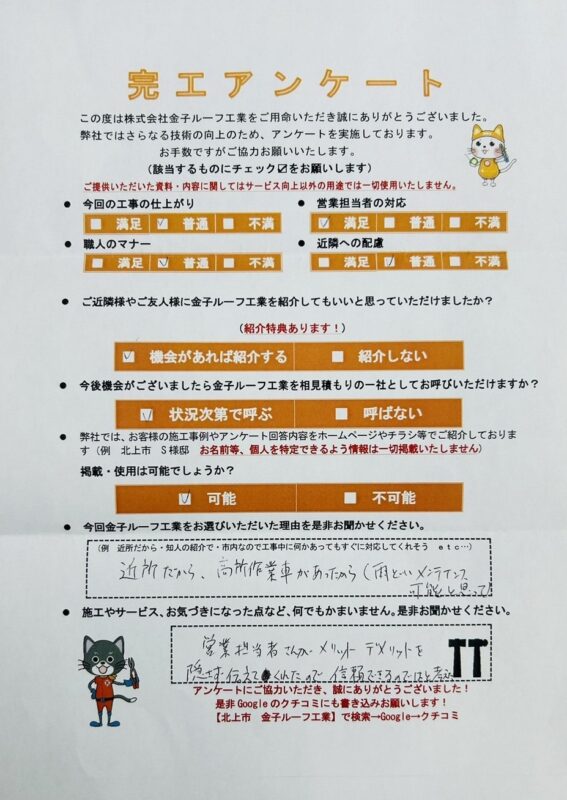 完工アンケート
この度は株式会社金子ルーフ工業をご用命いただき誠にありがとうございました。
弊社ではさらなる技術の向上のため、アンケートを実施しております。
お手数ですがご協力お願いいたします。
(該当するものにチェック☑をお願いします)
ご提供いただいた資料・内容に関してはサービス向上以外の用途では一切使用いたしません。
● 今回の工事の仕上がり
満足 ☑ 普通 不満
● 営業担当者の対応
☑ 満足 普通 不満
● 職人のマナー
満足 ☑ 普通 不満
● 近隣への配慮
満足 ☑ 普通 不満
● ご近隣様やご友人様に金子ルーフ工業を紹介してもいいと思っていただけましたか?
(紹介特典あります!)
☑ 機会があれば紹介する 紹介しない
● 今後機会がございましたら金子ルーフ工業を相見積もりの一社としてお呼びいただけますか?
☑ 状況次第で呼ぶ 呼ばない
● 弊社では、お客様の施工事例やアンケート回答内容をホームページやチラシ等でご紹介しておりま
す(例 北上市 S様邸 お名前等、個人を特定できるよう情報は一切掲載いたしません)
掲載・使用は可能でしょうか?
☑ 可能 不可能
● 今回金子ルーフ工業をお選びいただいた理由を是非お聞かせください。
(例 近所だから・知人の紹介で・市内なので工事中に何かあってもすぐに対応してくれそう etc…)
近所だから、高所作業車があったから(雨といメンテナンス
可能と思って)
● 施工やサービス、お気づきになった点など、何でもかまいません。是非お聞かせください。
営業担当者さんがメリット デメリットを
隠さず伝えてくれたので信頼できるのではと考えた
アンケートにご協力いただき、誠にありがとうございました!
是非Googleのクチコミにも書き込みお願いします!
【北上市 金子ルーフ工業】で検索→Google→クチコミ